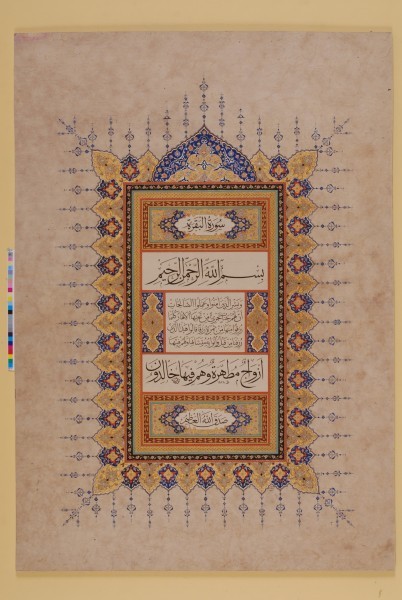 سورة البقرة
بسم الله الرحمن الرحيم
وبشر الذين امنوا وعملوا الصالحات
ان لهم جنات تجري من تحتها الانهار كلما
رزقوا منها من ثمرة رزقا قالوا هذا الذي
رزقنا من قبل واتوا به متشابها ولهم فيها
ازواج مطهرة وهم فيها خالدون
صدق الله العظيم